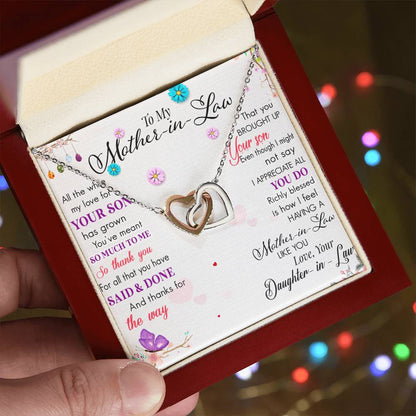 To My
Mother-in-Law
All the while
my love for
YOUR SON
has grown
You've meant
SO MUCH TO ME
So thank you
For all that you have
SAID & DONE
And thanks for
the way
That you
BROUGHT UP
Your son
Even though I might
not say
I APPRECIATE ALL
YOU DO
Richly blessed
is how I feel
HAVING A
Mother-in-Law
LIKE YOU
Love, Your
Daughter-in-Law